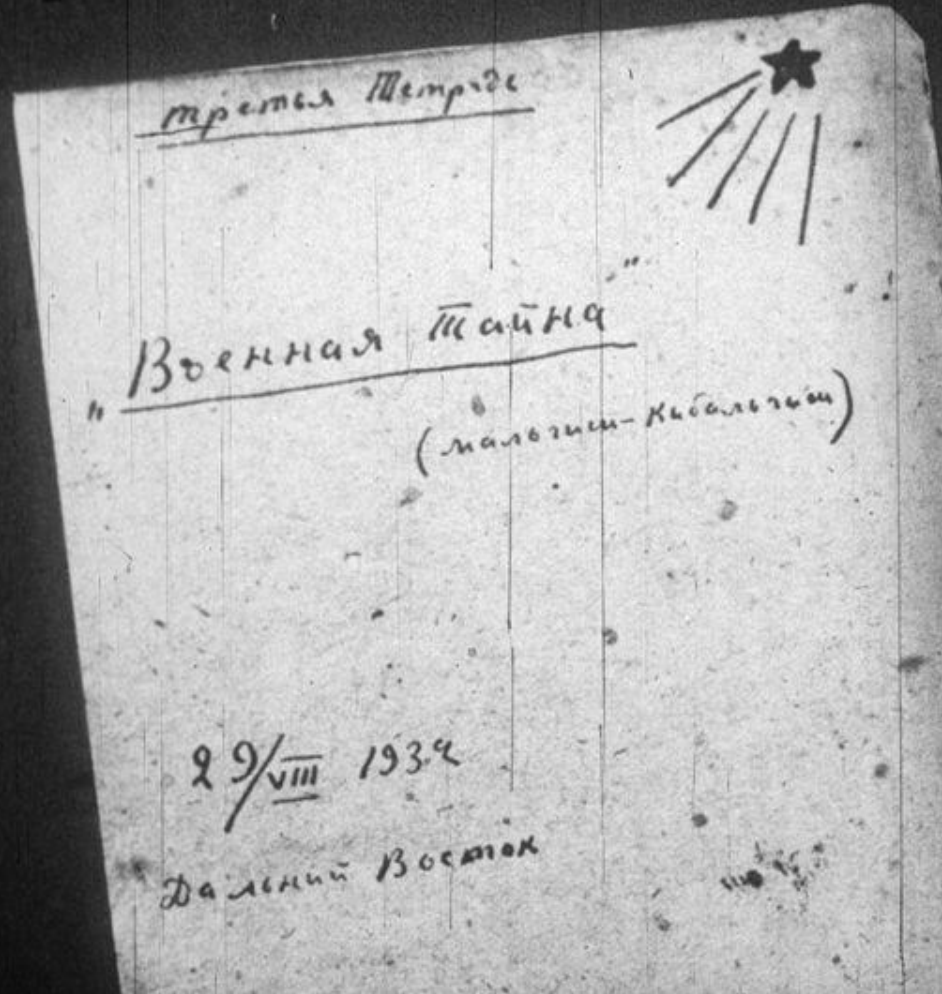 третья Тетрадь
"Военная Тайна"
(мальчиш-Кибальчиш)
29/VIII 1932
Дальний Восток